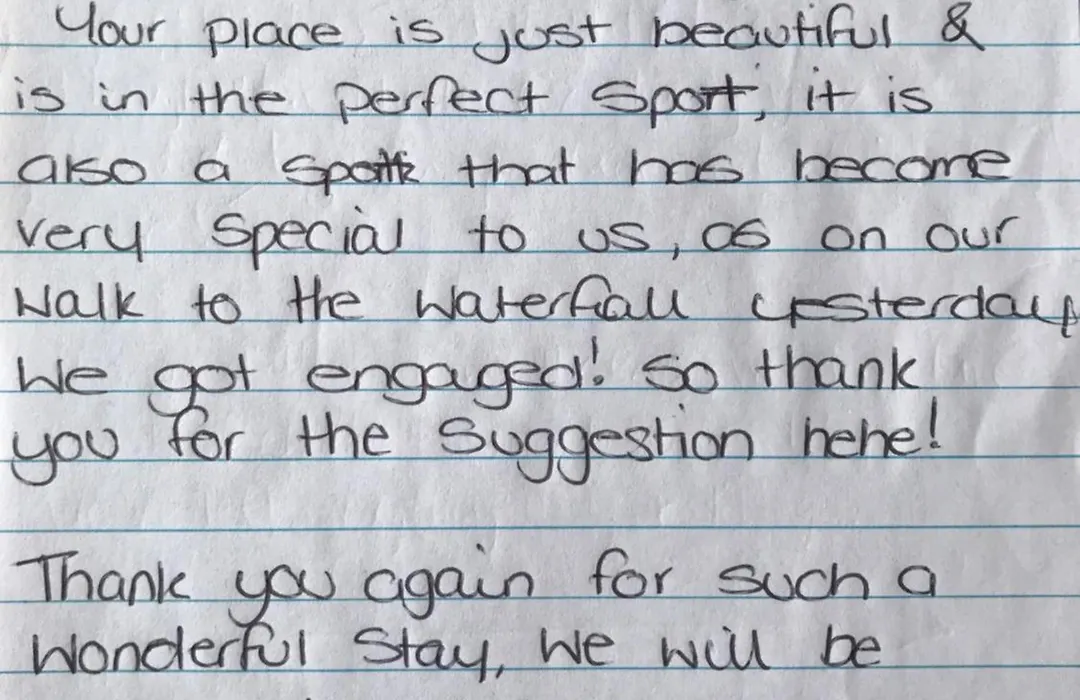 Your place is just beautiful &
is in the perfect sport, it is
also a spott that has become
very special to us, as on our
walk to the waterfall yesterday
We got engaged! So thank
you for the suggestion hehe!
Thank you again for such a
wonderful stay, we will be